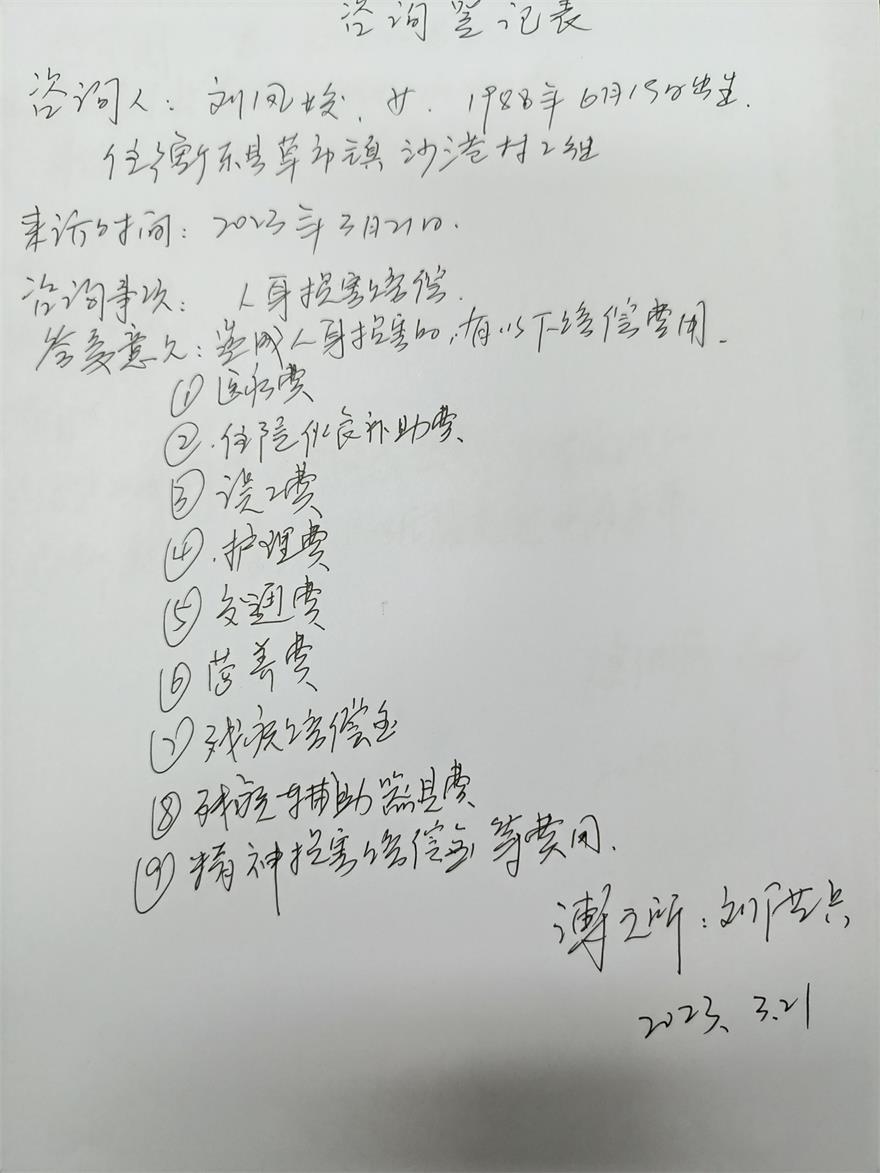 咨询登记表
咨询人：刘凤姣，女．1988年6月15日出生．
住衡东县草市镇沙港村2组
来访时间：2023年3月21日．
咨询事项：人身损害赔偿．
答复意见：造成人身损害的，有以下赔偿费用．
①医疗费
②．住院伙食补助费
③误工费
④．护理费
⑤交通费
⑥营养费
⑦残疾赔偿金
⑧残疾辅助器具费
⑨精神损害赔偿金等费用．
所：刘洪兵
2023、3.21